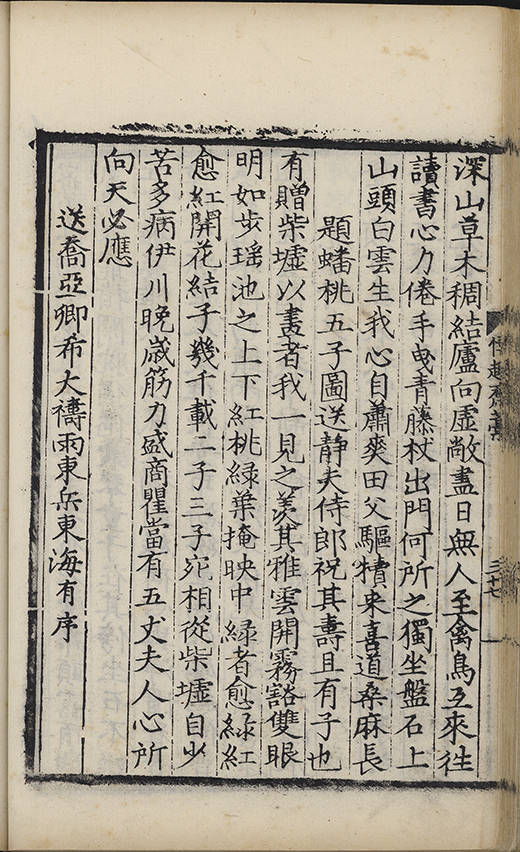 深山草木稠結廬向虛敞盡日無人至禽鳥互來往
讀書心力倦手曳青藤杖出門何所之獨坐盤石上
山頭白雲生我心自蕭爽田父驅犢來喜道桑麻長
題蟠桃五子圖送靜夫侍郎祝其壽且有子也
有贈柴墟以畫者我一見之羨其雅雲開霧豁雙眼
明如步瑤池之上下紅桃綠葉掩映中綠者愈綠紅
愈紅開花結子幾千載二子三子宛相從柴墟自少
苦多病伊川晚歲筋力盛商瞿當有五丈夫人心所
向天必應
送喬亞卿希大禱雨東岳東海有序
三十七